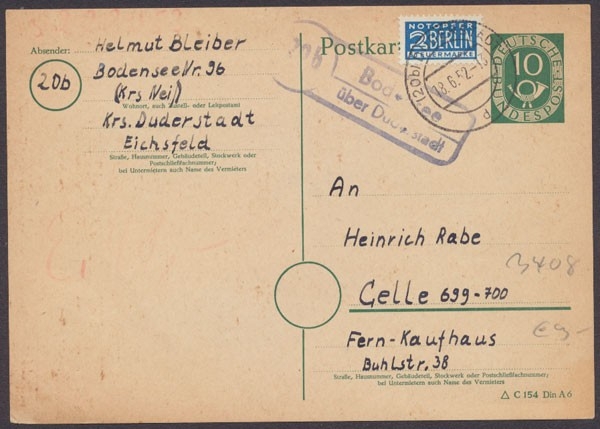 Absender:
Helmut Bleiber
Bodensee Nr. 96
20b
(Krs Nej)
Wohnort, auch Zustell- oder Leitpostamt
Krs. Duderstadt
Eichsfeld
Straße, Hausnummer, Gebäudeteil, Stockwerk oder
Postschließfachnummer;
bei Untermietern auch Name des Vermieters
Postkar
NOTOPFER
2 BERLIN
STEUERMARKE
(20b)
18.6.52
DEUTSCHE
10
BUNDESPOST
20b
Bod see
über Dud stadt
An
Heinrich Rabe
Celle 699-700
Fern-Kaufhaus
Buhlstr. 38
Straße, Hausnummer, Gebäudeteil, Stockwerk oder Postschließfachnummer;
bei Untermietern auch Name des Vermieters
3408
△ C 154 Din A 6